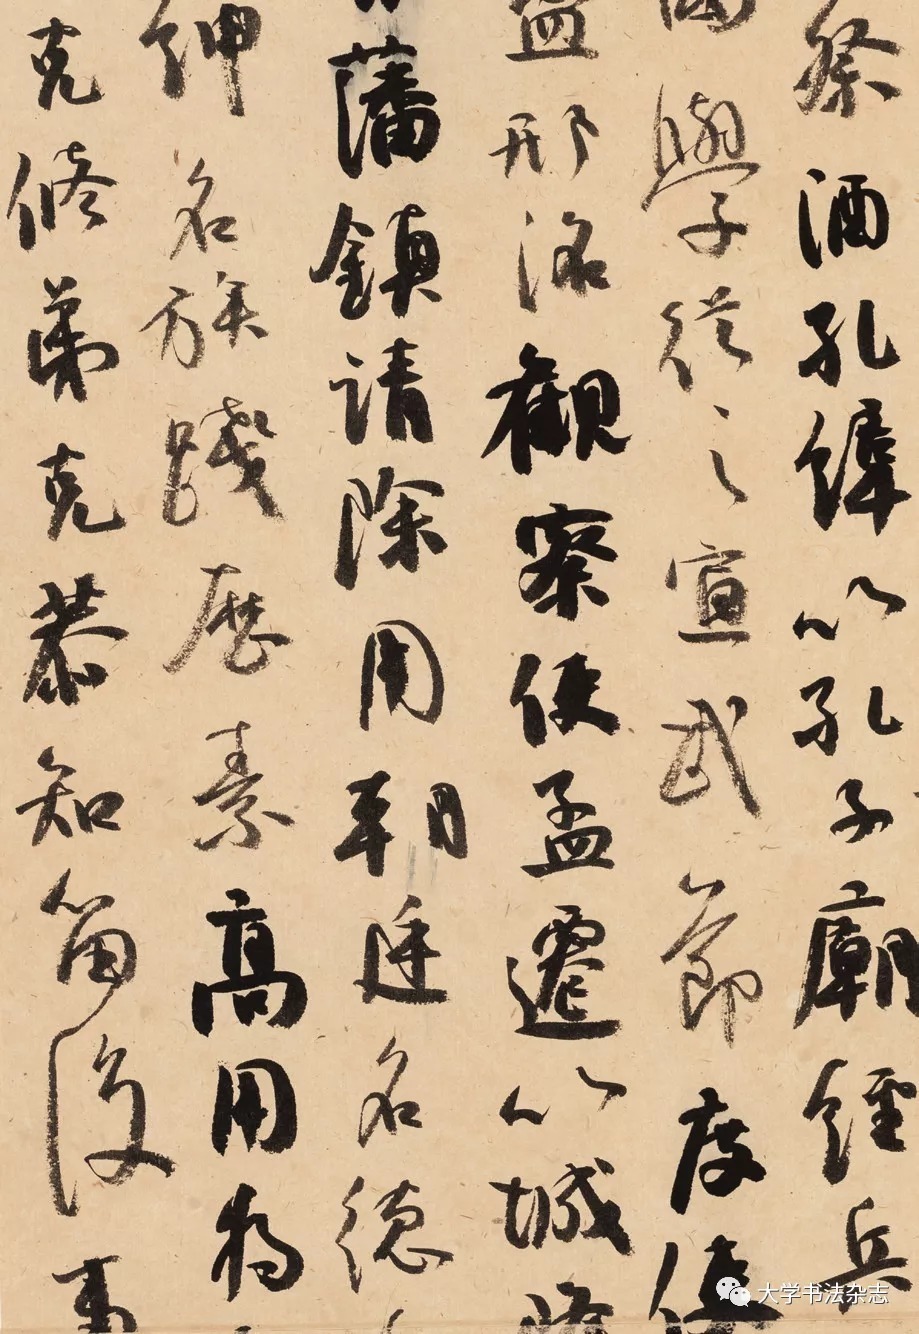 祭酒孔緯以孔子廟經兵
國學從之宣武節度使
邢洺觀察使孟遷以城
藩鎮請除用朝廷名德
紳名族踐歷素高用
克修弟克恭知留後事
大学书法杂志